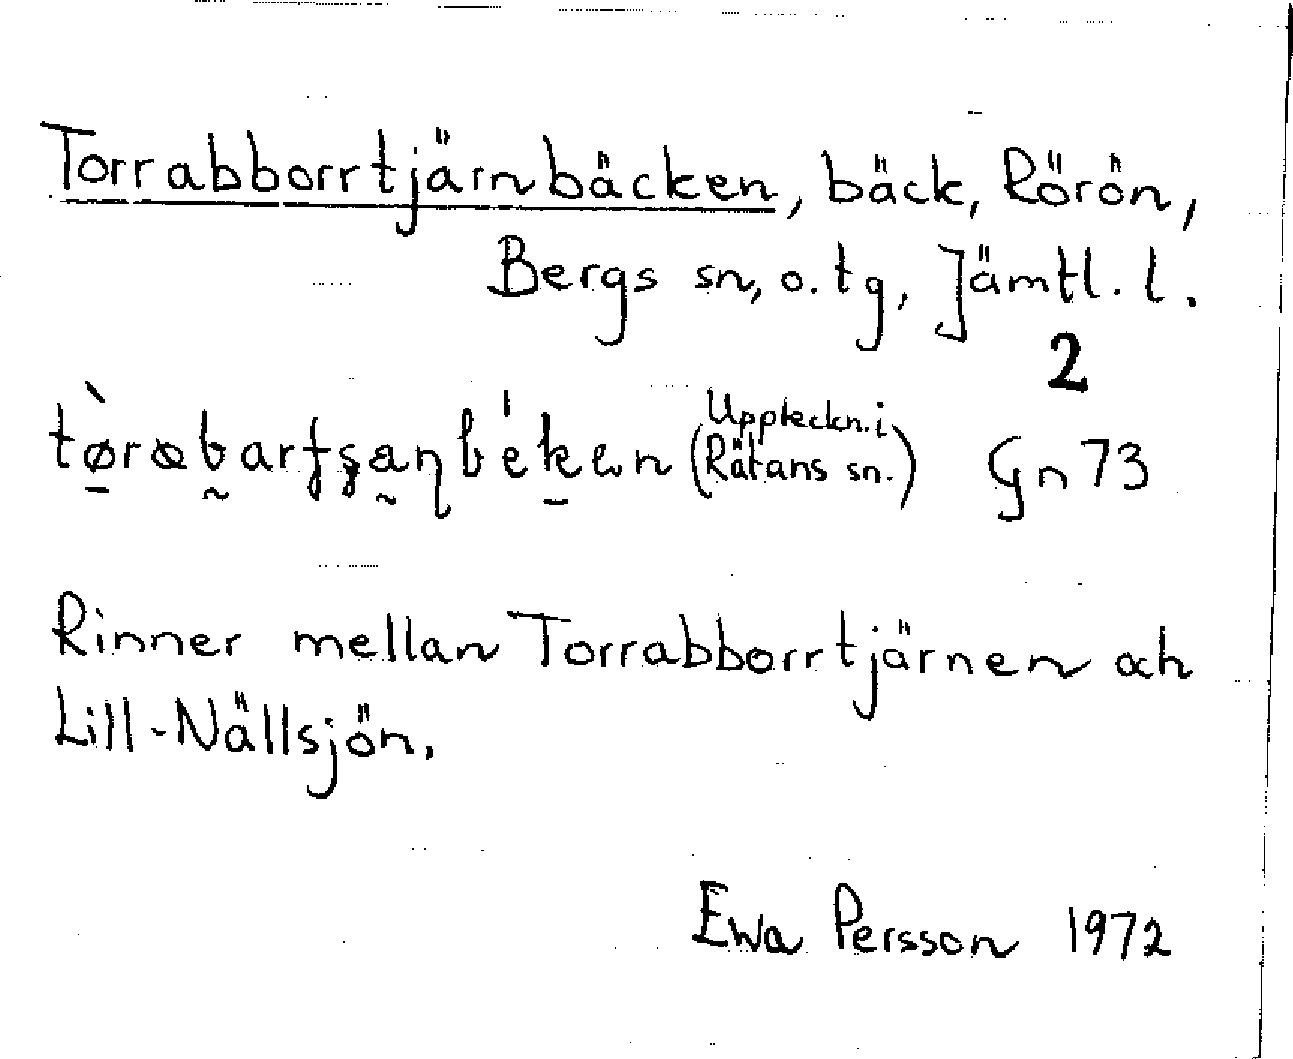 Torrabborrtjärnbäcken, bäck, Rörön,
Bergs sn, o. tg, Jämtl. l.
2
(Uppteckn. i Rätans sn.) Gn 73
Rinner mellan Torrabborrtjärnen och
Lill-Nällsjön.
Ewa Persson 1972